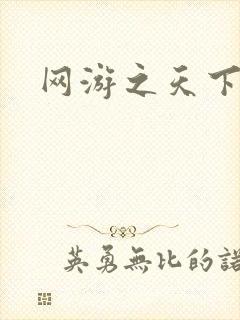 网游之天下
英勇無比的諾